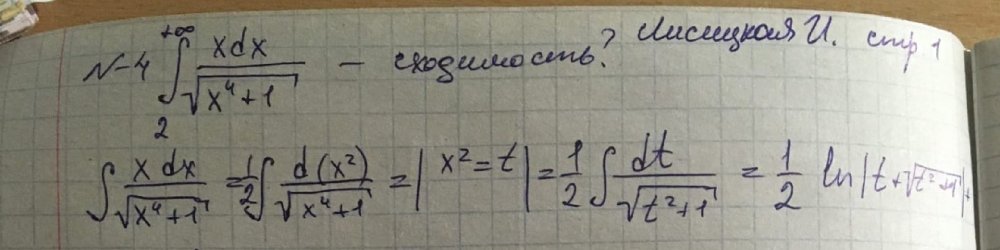 N-4 ∫₂^{+∞} xdx/√(x⁴+1) - сходимость? Лисицкая И. стр 1
∫ x dx/√(x⁴+1) = 1/2 ∫ d(x²)/√(x⁴+1) = | x² = t | = 1/2 ∫ dt/√(t²+1) = 1/2 ln|t+√(t²+1)|+